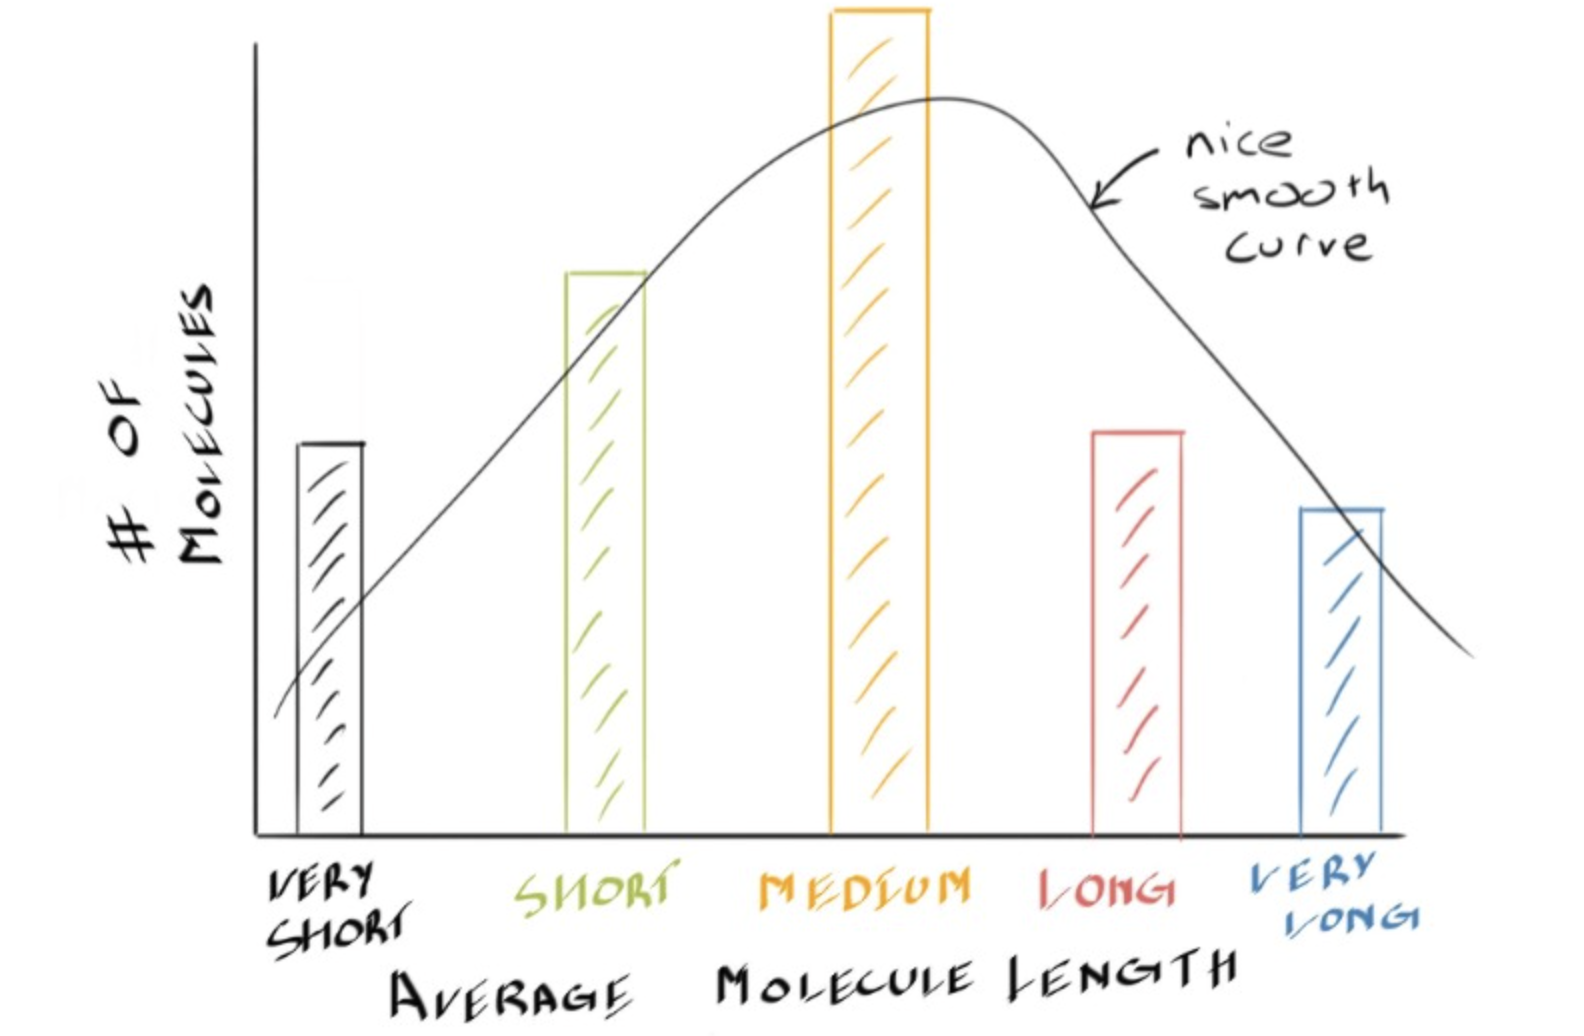 # OF
MOLECULES
nice
smooth
curve
VERY
SHORT
SHORT
MEDIUM
LONG
VERY
LONG
AVERAGE MOLECULE LENGTH